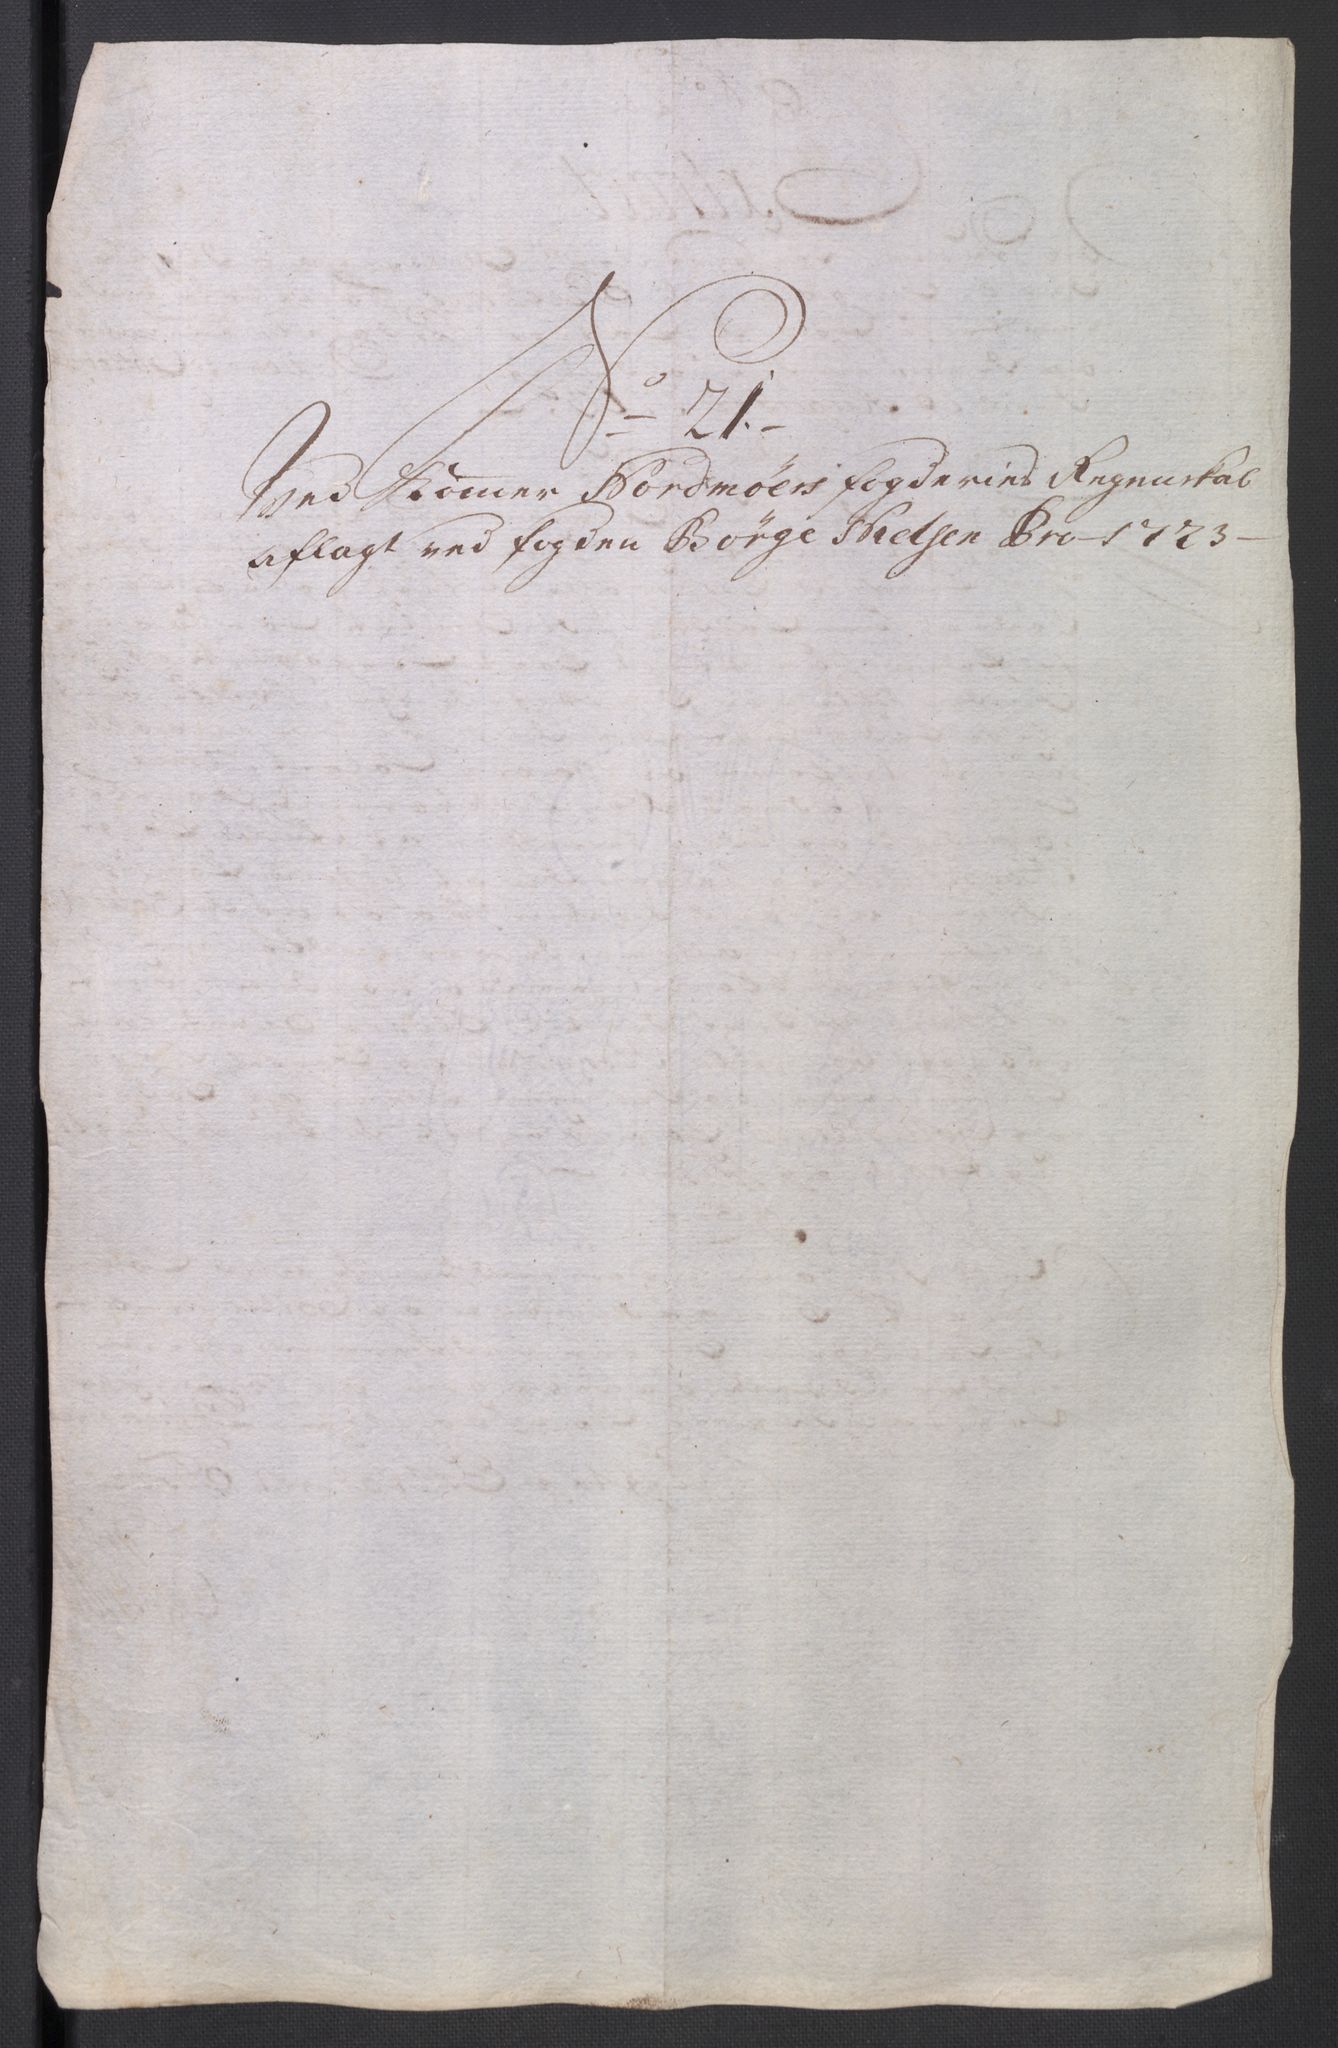 No 21.
Ved kommer Nordmøers fogderies Regenskab
aflagt ved fogden Børge Nielsen Pro 1723